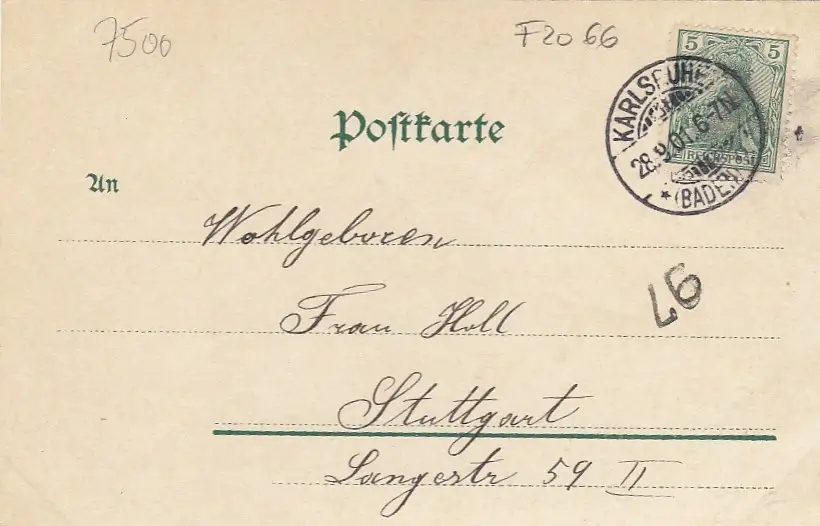 7500
F20 66
5 5
REICHSPOST
KARLSRUHE
28.9.01.6-7N.
* (BADEN)
Postkarte
An
Wohlgeboren
Frau Holl
Stuttgart
Langestr 59 II